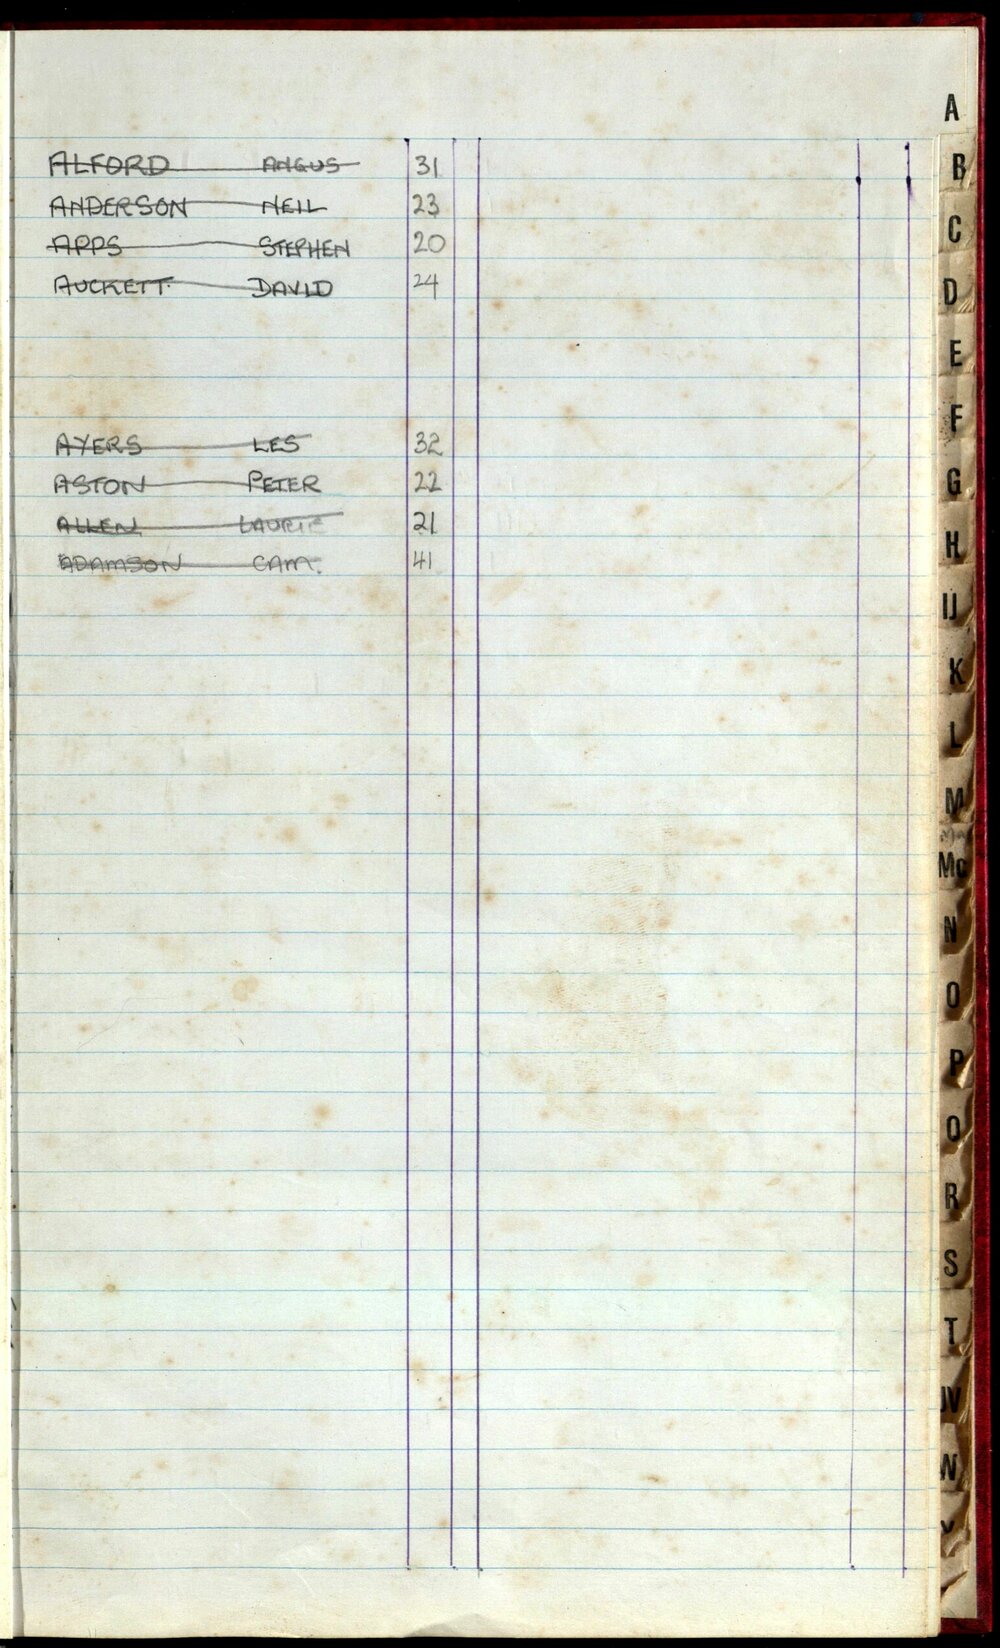 A
ALFORD ANGUS 31
ANDERSON NEIL 23
APPS STEPHEN 20
AUCKETT DAVID 24
AYERS LES 32
ASTON PETER 22
ALLEN LAURIE 21
ADAMSON CAM. 41
B
C
D
E
F
G
H
IJ
K
L
M
Mac
Mc
N
O
P
Q
R
S
T
UV
W
Y